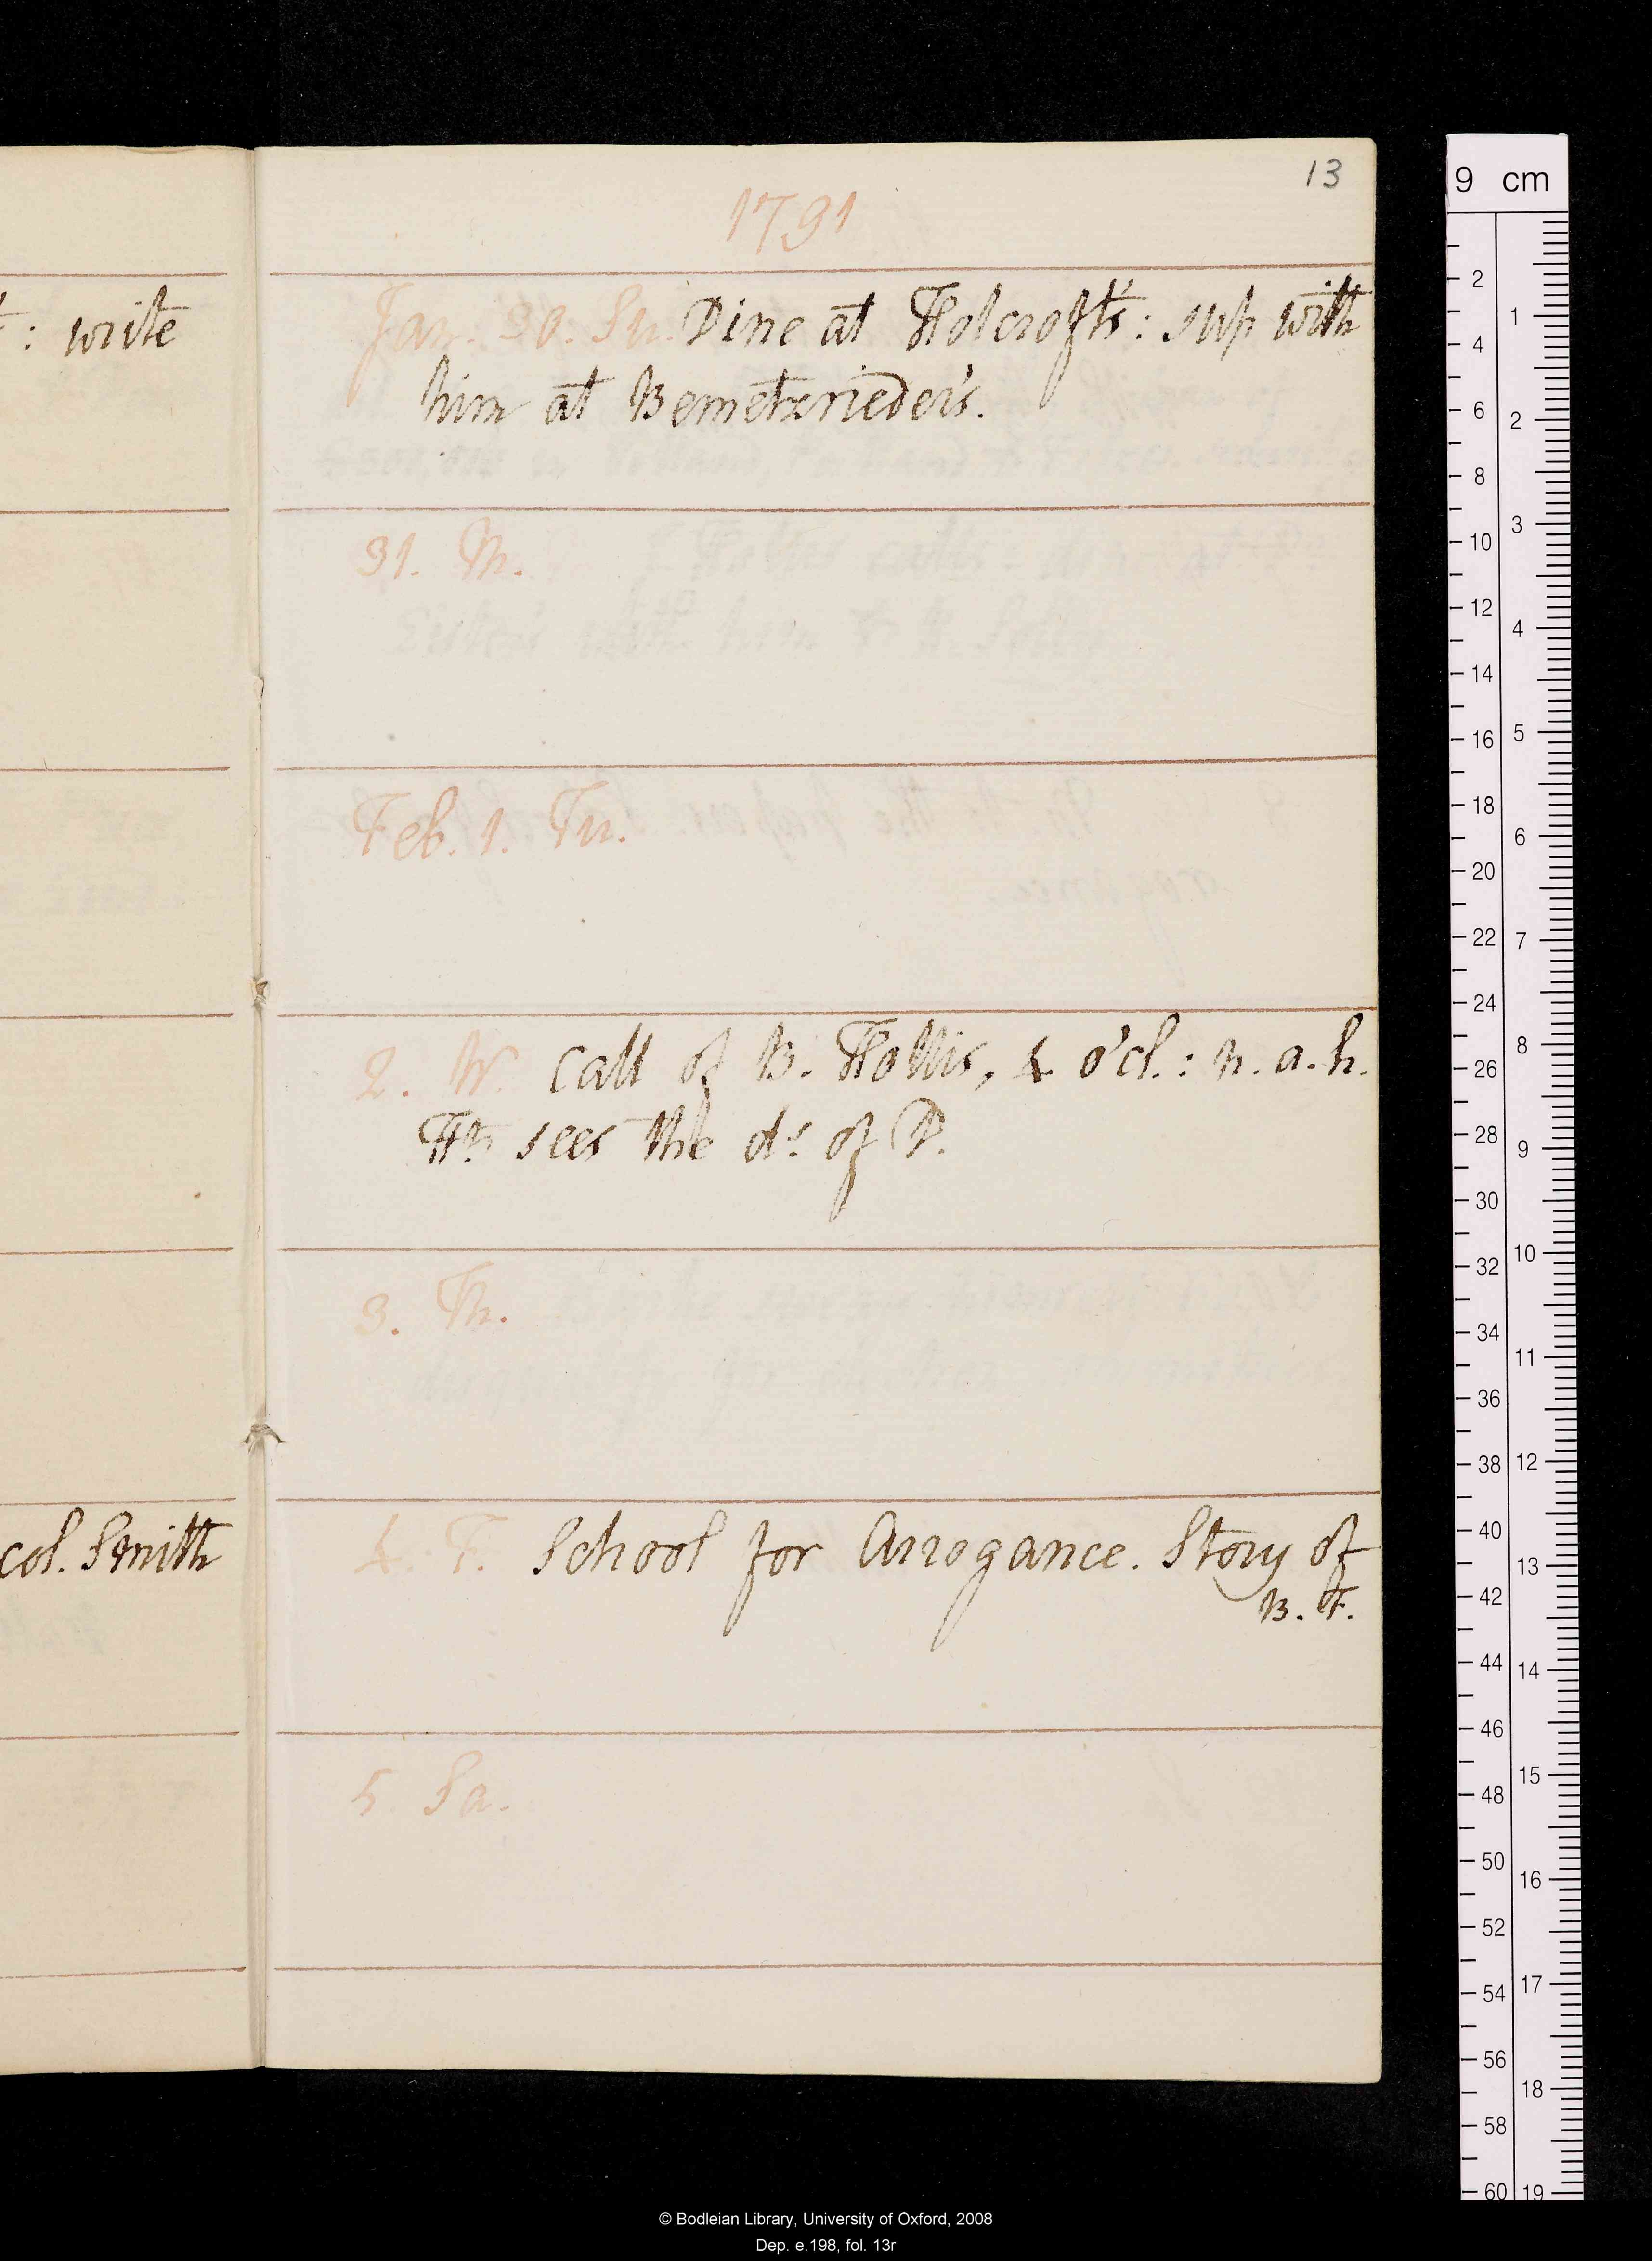 13
1791
: write
Jan. 30. Su. Dine at Holcroft's: sup with
him at Bemetzrieder's.
31. M.
Feb. 1. Tu.
2. W. Call of B. Hollis, 4 o'cl.: n. a. h.
Ht sees the ds of P.
3. Th.
col. Smith
4. F. School for Arrogance. Story of
B. F.
5. Sa.
9 cm
2
4
6
8
10
12
14
16
18
20
22
24
26
28
30
32
34
36
38
40
42
44
46
48
50
52
54
56
58
60
1
2
3
4
5
6
7
8
9
10
11
12
13
14
15
16
17
18
19
© Bodleian Library, University of Oxford, 2008
Dep. e.198, fol. 13r